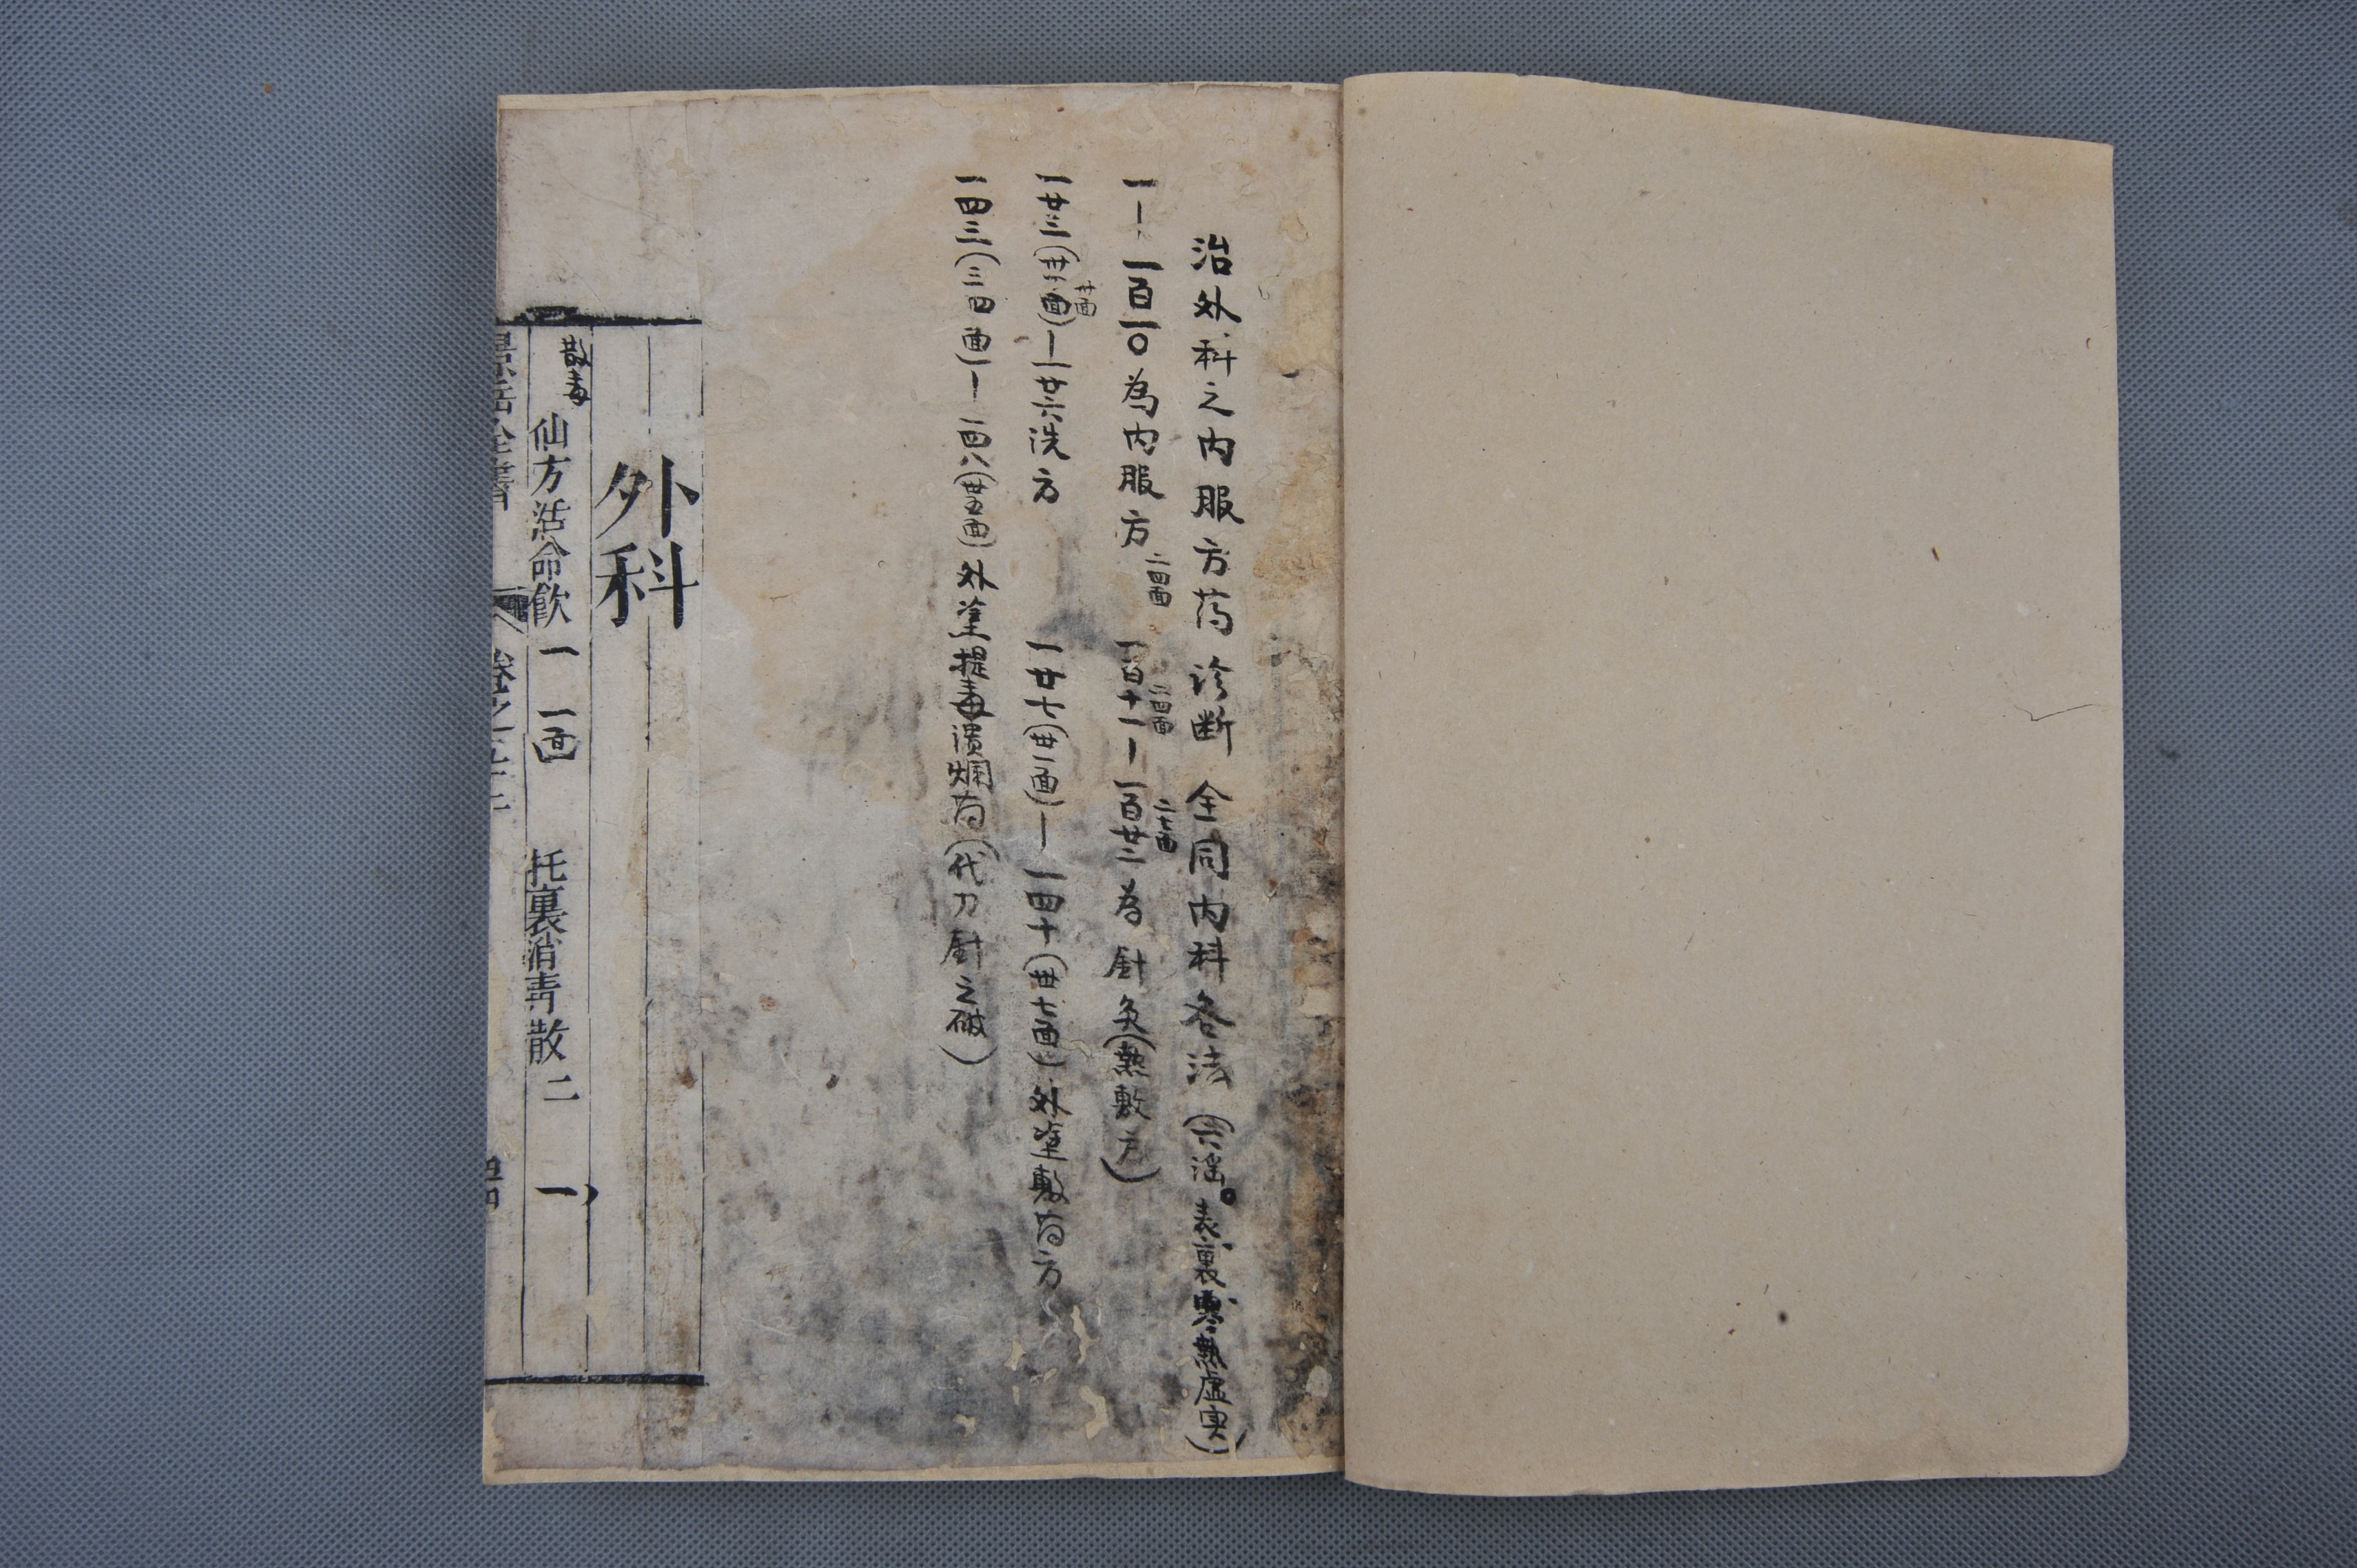 治外科之内服方药 诊断 全同内科各法（六滛。表裏寒热虚实）
一－一百一〇為内服方 一百十一－一百廿二为針灸（熱敷方）
二四面
二四面
二七面
一廿三（廿六面）－一廿六洗方 一廿七（卅一面）－一四十（卅七面）外塗敷药方
廿面
一四三（三四面）－一四八（卅五面）外塗提毒溃烂药（代刀針之砭）
外科
散毒
仙方活命飲一 一面 托裏消毒散二 一
景岳全書 卷之六十三